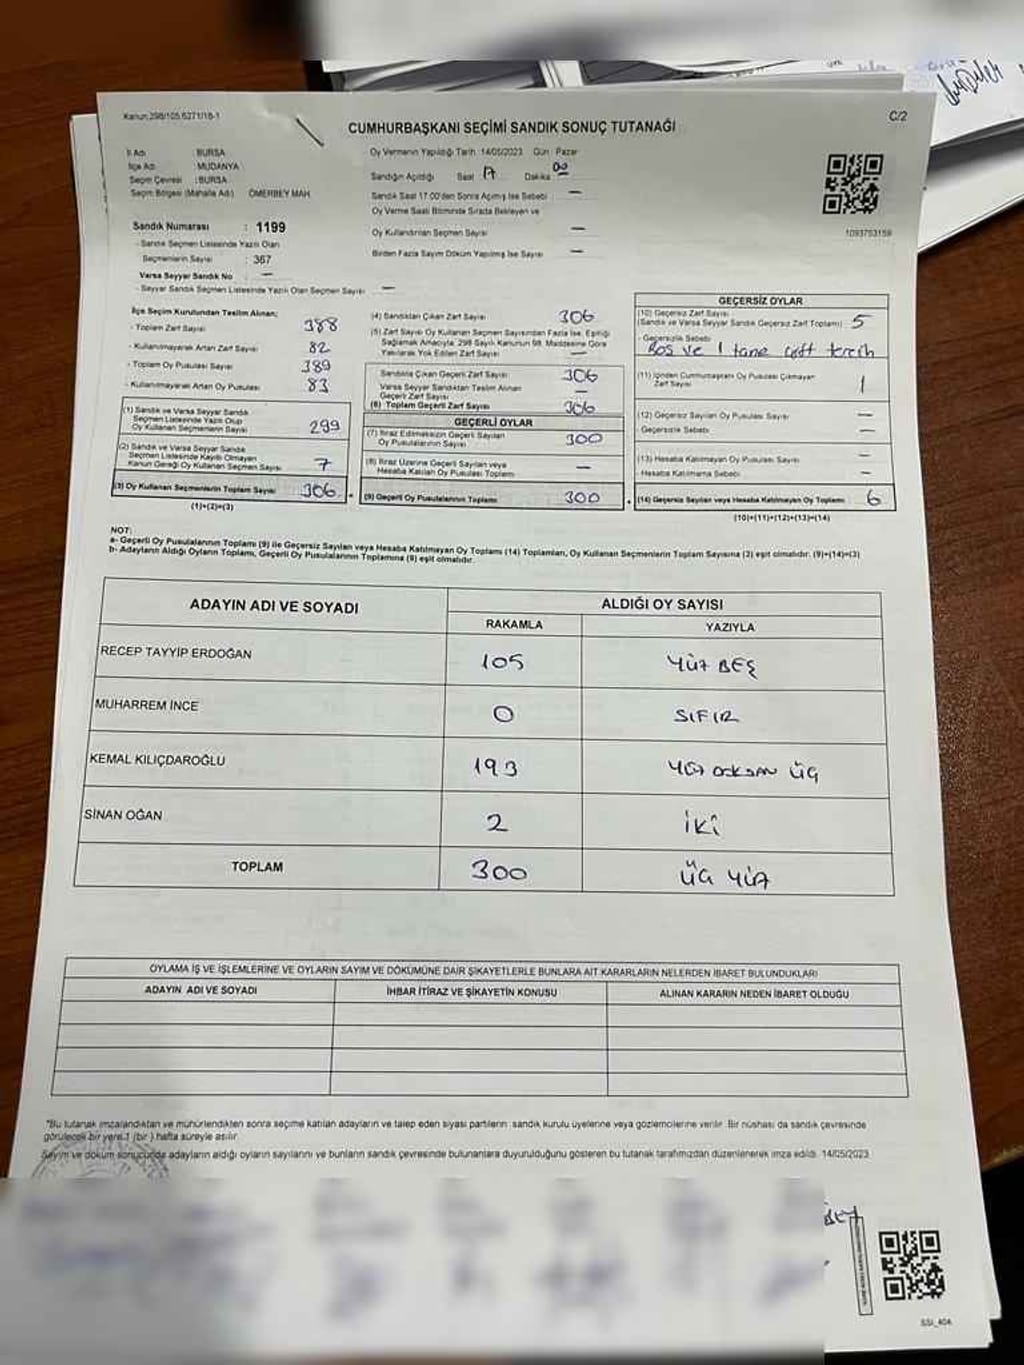 Kanun:298/105,6271/18-1
C/2
CUMHURBAŞKANI SEÇİMİ SANDIK SONUÇ TUTANAĞI
İl Adı : BURSA
İlçe Adı : MUDANYA
Seçim Çevresi : BURSA
Seçim Bölgesi (Mahalle Adı) ÖMERBEY MAH.
Sandık Numarası : 1199
- Sandık Seçmen Listesinde Yazılı Olan
Seçmenlerin Sayısı : 367
Varsa Seyyar Sandık No —
- Seyyar Sandık Seçmen Listesinde Yazılı Olan Seçmen Sayısı —
Oy Vermenin Yapıldığı Tarih 14/05/2023 Gün : Pazar
Sandığın Açıldığı Saat 17 Dakika 00
Sandık Saat 17:00'den Sonra Açılmış İse Sebebi —
Oy Verme Saati Bitiminde Sırada Bekleyen ve
Oy Kullandırılan Seçmen Sayısı —
Birden Fazla Sayım Döküm Yapılmış İse Sayısı —
1093753159
İlçe Seçim Kurulundan Teslim Alınan;
- Toplam Zarf Sayısı 388
- Kullanılmayarak Artan Zarf Sayısı 82
- Toplam Oy Pusulası Sayısı 389
- Kullanılmayarak Artan Oy Pusulası 83
(1) Sandık ve Varsa Seyyar Sandık
Seçmen Listesinde Yazılı Olup
Oy Kullanan Seçmenlerin Sayısı 299
(2) Sandık ve Varsa Seyyar Sandık
Seçmen Listesinde Kayıtlı Olmayan
Kanun Gereği Oy Kullanan Seçmen Sayısı 7
(3) Oy Kullanan Seçmenlerin Toplam Sayısı 306
(1)+(2)=(3)
(4) Sandıktan Çıkan Zarf Sayısı 306
(5) Zarf Sayısı Oy Kullanan Seçmen Sayısından Fazla İse, Eşitliği
Sağlamak Amacıyla, 298 Sayılı Kanunun 98. Maddesine Göre
Yakılarak Yok Edilen Zarf Sayısı —
Sandıkta Çıkan Geçerli Zarf Sayısı 306
Varsa Seyyar Sandıktan Teslim Alınan
Geçerli Zarf Sayısı —
(6) Toplam Geçerli Zarf Sayısı 306
GEÇERLİ OYLAR
(7) İtiraz Edilmeksizin Geçerli Sayılan
Oy Pusulalarının Sayısı 300
(8) İtiraz Üzerine Geçerli Sayılan veya
Hesaba Katılan Oy Pusulası Toplamı —
(9) Geçerli Oy Pusulalarının Toplamı 300
GEÇERSİZ OYLAR
(10) Geçersiz Zarf Sayısı
(Sandık ve Varsa Seyyar Sandık Geçersiz Zarf Toplamı) 5
- Geçersizlik Sebebi
Boş ve 1 tane çift tercih
(11) İçinden Cumhurbaşkanı Oy Pusulası Çıkmayan
Zarf Sayısı 1
(12) Geçersiz Sayılan Oy Pusulası Sayısı —
- Geçersizlik Sebebi —
(13) Hesaba Katılmayan Oy Pusulası Sayısı —
- Hesaba Katılmama Sebebi —
(14) Geçersiz Sayılan veya Hesaba Katılmayan Oy Toplamı 6
(10)+(11)+(12)+(13)=(14)
NOT:
a- Geçerli Oy Pusulalarının Toplamı (9) ile Geçersiz Sayılan veya Hesaba Katılmayan Oy Toplamı (14) Toplamları, Oy Kullanan Seçmenlerin Toplam Sayısına (3) eşit olmalıdır. (9)+(14)=(3)
b- Adayların Aldığı Oyların Toplamı, Geçerli Oy Pusulalarının Toplamına (9) eşit olmalıdır.
ADAYIN ADI VE SOYADI ALDIĞI OY SAYISI
RAKAMLA YAZIYLA
RECEP TAYYİP ERDOĞAN 105 YÜZ BEŞ
MUHARREM İNCE 0 SIFIR
KEMAL KILIÇDAROĞLU 193 YÜZ DOKSAN ÜÇ
SİNAN OĞAN 2 İKİ
TOPLAM 300 ÜÇ YÜZ
OYLAMA İŞ VE İŞLEMLERİNE VE OYLARIN SAYIM VE DÖKÜMÜNE DAİR ŞİKAYETLERLE BUNLARA AİT KARARLARIN NELERDEN İBARET BULUNDUKLARI
ADAYIN ADI VE SOYADI İHBAR İTİRAZ VE ŞİKAYETİN KONUSU ALINAN KARARIN NEDEN İBARET OLDUĞU
*Bu tutanak imzalandıktan ve mühürlendikten sonra seçime katılan adayların ve talep eden siyasi partilerin sandık kurulu üyelerine veya gözlemcilerine verilir. Bir nüshası da sandık çevresinde
görülecek bir yere 1 (bir) hafta süreyle asılır.
Sayım ve döküm sonucunda adayların aldığı oyların sayılarını ve bunların sandık çevresinde bulunanlara duyurulduğunu gösteren bu tutanak tarafımızdan düzenlenerek imza edildi. 14/05/2023
SSI_40A